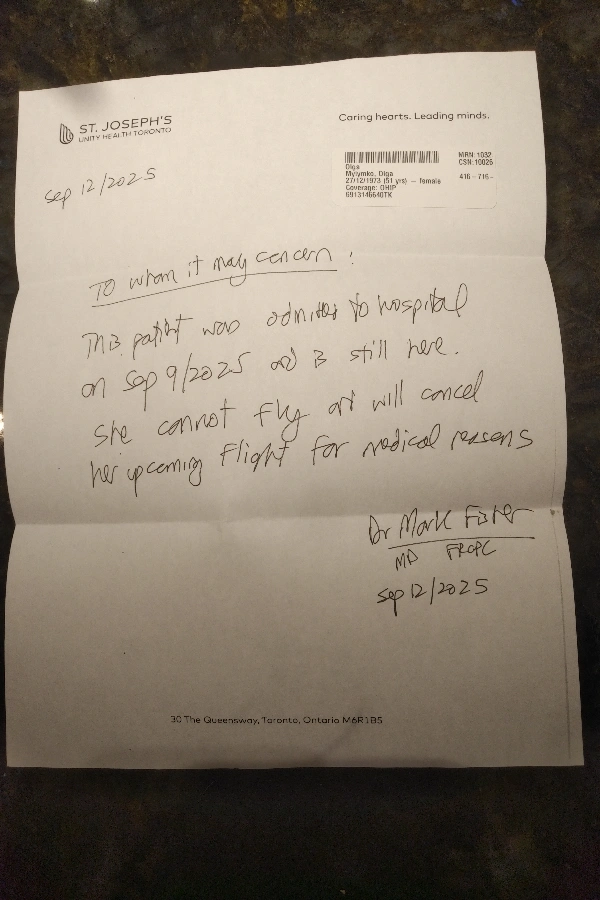 ST. JOSEPH'S
UNITY HEALTH TORONTO
Caring hearts. Leading minds.
Sep 12/2025
Olga
Mylymko, Olga
27/12/1973 (51 yrs) — female
Coverage: OHIP
6913146640TK
MRN: 1032
CSN: 10026
416 - 716 -
To whom it may concern :
This patient was admitted to hospital
on Sep 9/2025 and is still here.
She cannot fly and will cancel
her upcoming flight for medical reasons
Dr Mark Fisher
MD FRCPC
Sep 12/2025
30 The Queensway, Toronto, Ontario M6R1B5